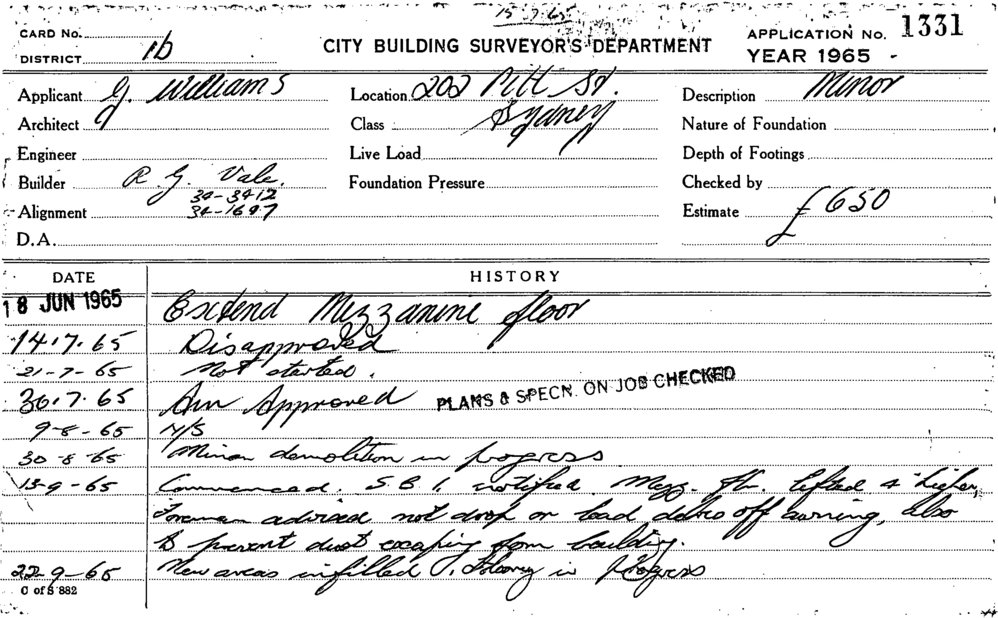 15.7.65
CARD No.
DISTRICT 1b
CITY BUILDING SURVEYOR'S DEPARTMENT
APPLICATION No. 1331
YEAR 1965 -
Applicant G. Williams
Location 202 Pitt St.
Sydney
Description Minor
Architect
Class
Nature of Foundation
Engineer
Live Load
Depth of Footings
Builder R. G. Vale.
Foundation Pressure
Checked by
34-3412
Alignment 34-1697
Estimate £650
D.A.
DATE HISTORY
18 JUN 1965 Extend Mezzanine floor
14.7.65 Disapproved
21-7-65 Not started.
30.7.65 Am Approved PLANS & SPECN. ON JOB CHECKED
9-8-65 N/S
30-8-65 Minor demolition in progress
13-9-65 Commenced. S.B.I. notified. Mezz. flr. lifted 4" higher,
Foreman advised not drop or load debre off awning, also
to prevent dust escaping from building.
22-9-65 New areas infilled. Flooring in progress
C of S 882